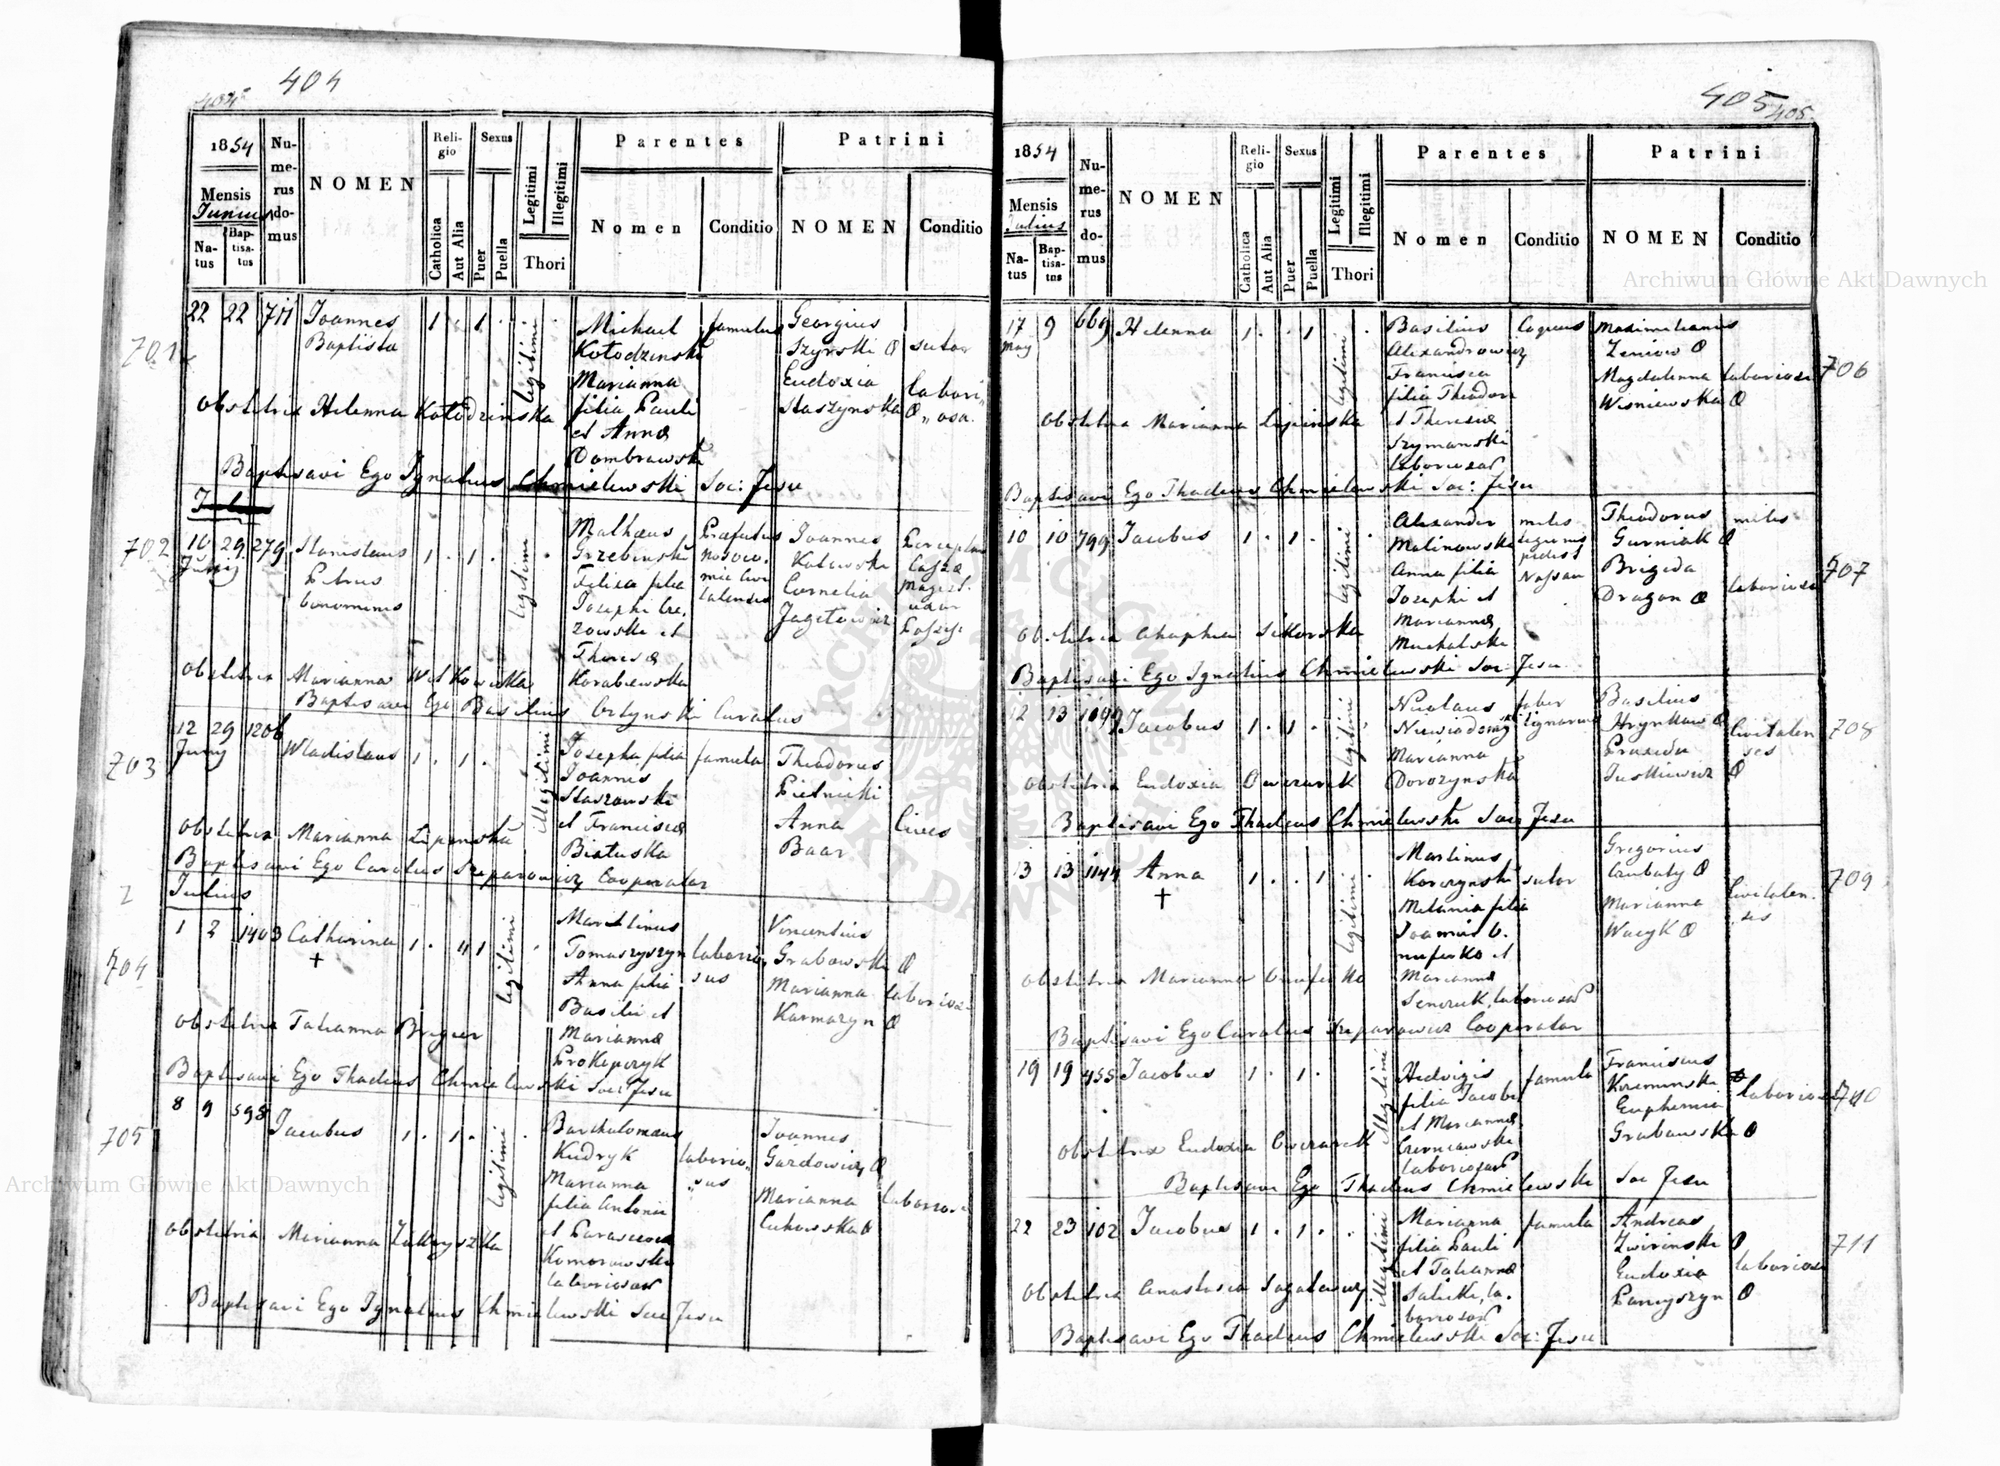 404
404
1854
Mensis
Junius
Natus
Baptisatus
Numerus domus
NOMEN
Religio
Catholica
Aut Alia
Sexus
Puer
Puella
Legitimi
Illegitimi
Thori
Parentes
Nomen
Conditio
Patrini
NOMEN
Conditio
701
22 22 711 Joannes 1 . 1 . legitimi . Michael famulus Georgius
Baptista Kołodzinski Szyrski sutor
Marianna Eudoxia
filia Pauli Staszynska labori„
Obstetrix Helenna Kołodzinska
et Anna „osa.
Dombrowski
Baptisavi Ego Ignatius Chmielewski Soc: Jesu
702
10 29 279 Stanislaus 1 . 1 . legitimi . Mathæus Præfectus Joannes
Junij Petrus Grzebinski Kutowski
bonominis Felixa filia Cornelia
Josephi Jagełowicz
et
Theresæ
Obstetrix Marianna Witkowska Korabiewska
Baptisavi Ego Basilius Ortynski Curatus
703
12 29 1206 Wladislaus 1 . 1 . illegitimi Josepha filia famula Theodorus
Junij Joannis Pietnicki
Staszowski
et Francisca Anna Cives
Obstetrix Marianna Lipinska Białuska Baar
Baptisavi Ego Carolus Szeparowicz Cooperator
Julius
704
1 2 1403 Catharina 1 . 1 legitimi . Martinus Vincentius
+ Tomaszyszyn laborio„ Grabowski
Anna filia sus Marianna laboriosa
Basilii et Karmazyn
Obstetrix Tatianna Brygier Mariannæ
Prokipczyk
Baptisavi Ego Thadeus Chmielewski Soc: Jesu
705
8 9 598 Jacobus 1 . 1 . legitimi . Bartholomæus Joannes
Kudryk laborio„ Gardowicz
Marianna sus Marianna laboriosi
filia Antonii Lukowska
Obstetrix Marianna Zakryszka et Parascevia
Komorowski
laboriosor
Baptisavi Ego Ignatius Chmielewski Soc Jesu
405
405.
1854
Mensis
Julius
Natus
Baptisatus
Numerus domus
NOMEN
Religio
Catholica
Aut Alia
Sexus
Puer
Puella
Legitimi
Illegitimi
Thori
Parentes
Nomen
Conditio
Patrini
NOMEN
Conditio
17 9 669 Helenna 1 . . 1 legitimi . Basilius coquus Maximilianus
May Alexandrowicz Zeniow
Francisca Magdalenna laboriosi
706
filia Theodori Wisniewska
Obstetrix Marianna Lipinska et Theresiæ
Szymanski
laboriosor
Baptisavi Ego Thadeus Chmielewski Soc: Jesu
10 10 799 Jacobus 1 . 1 . legitimi . Alexander miles Theodorus miles
Malinowski legionis Gurniak
Anna filia pedest Brigida
707
Josephi et Nassau Dragan laboriosa
Obstetrix Ahaphia Sikorska Mariannæ
Michalska
Baptisavi Ego Ignatius Chmielewski Soc: Jesu
12 13 1099 Jacobus 1 . 1 . legitimi Nicolaus faber Basilius
Niewiadomski lignarius Hrynkow Civitalen
708
Marianna Praxeda ses
Obstetrix Eudoxia Owczarek Dorozynska Juskiewicz
Baptisavi Ego Thadeus Chmielewski Soc Jesu
13 13 1144 Anna 1 . . 1 legitimi . Martinus Gregorius
+ Korczynski sutor Caubaty
709
Melania filia Marianna Civitalen.
Joannis O. Wacyk ses
nuferko et
Obstetrix Marianna Onuferko Mariannæ
Senczuk, laboriosor
Baptisavi Ego Carolus Szeparowicz Cooperator
19 19 455 Jacobus 1 . 1 . illegitimi Hedvigis famula Franciscus
filia Jacobi Kreminski laboriosi
710
et Mariannæ Euphemia
Obstetrix Eudoxia Owczarek Czerniawski Grabowska
laboriosor
Baptisavi Ego Thadeus Chmielewski Soc Jesu
22 23 102 Jacobus 1 . 1 . illegitimi Marianna famula Andreas
filia Pauli Zwirinski
711
et Tatiannæ Eudoxia laboriosi
Obstetrix Anastasia Sagatowicz Salicki, la. Pancyszyn
boriosor
Baptisavi Ego Thadeus Chmielewski Soc: Jesu
Archiwum Główne Akt Dawnych
Archiwum Główne Akt Dawnych
ARCHIWUM GŁÓWNE AKT DAWNYCH